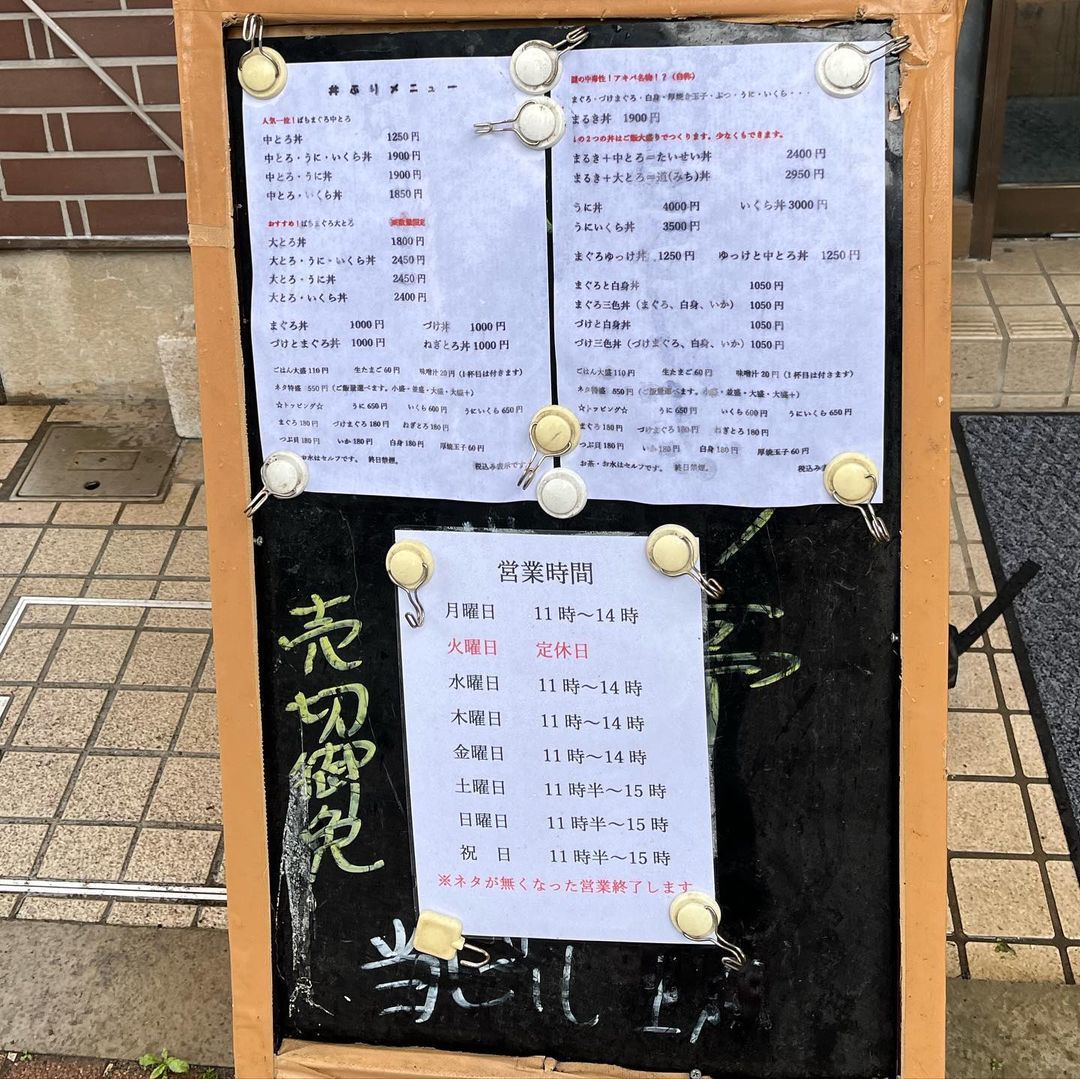 丼ぶりメニュー
人気一位！ばちまぐろ中とろ
中とろ丼 1250円
中とろ・うに・いくら丼 1900円
中とろ・うに丼 1900円
中とろ・いくら丼 1850円
おすすめ！ばちまぐろ大とろ 数量限定
大とろ丼 1800円
大とろ・うに・いくら丼 2450円
大とろ・うに丼 2450円
大とろ・いくら丼 2400円
まぐろ丼 1000円 づけ丼 1000円
づけとまぐろ丼 1000円 ねぎとろ丼 1000円
ごはん大盛 110円 生たまご 60円 味噌汁 20円（1杯目は付きます）
ネタ特盛 550円（ご飯量選べます。小盛・並盛・大盛・大盛＋）
☆トッピング☆ うに 650円 いくら 600円 うにいくら 650円
まぐろ 180円 づけまぐろ 180円 ねぎとろ 180円
つぶ貝 180円 いか 180円 白身 180円 厚焼玉子 60円
お水はセルフです。 終日禁煙。 税込み表示です
謎の中毒性！アキバ名物！？（自称）
まぐろ・づけまぐろ・白身・厚焼き玉子・ぶつ・うに・いくら・・・
まるき丼 1900円
の2つの丼はご飯大盛りでつくります。少なくもできます。
まるき＋中とろ＝たいせい丼 2400円
まるき＋大とろ＝道(みち)丼 2950円
うに丼 4000円 いくら丼 3000円
うにいくら丼 3500円
まぐろゆっけ丼 1250円 ゆっけと中とろ丼 1250円
まぐろと白身丼 1050円
まぐろ三色丼（まぐろ、白身、いか） 1050円
づけと白身丼 1050円
づけ三色丼（づけまぐろ、白身、いか） 1050円
ごはん大盛 110円 生たまご 60円 味噌汁 20円（1杯目は付きます）
ネタ特盛 550円（ご飯量選べます。小盛・並盛・大盛・大盛＋）
☆トッピング☆ うに 650円 いくら 600円 うにいくら 650円
まぐろ 180円 づけまぐろ 180円 ねぎとろ 180円
つぶ貝 180円 いか 180円 白身 180円 厚焼玉子 60円
お茶・お水はセルフです。 終日禁煙。 税込み表示で
営業時間
月曜日 11時～14時
火曜日 定休日
水曜日 11時～14時
木曜日 11時～14時
金曜日 11時～14時
土曜日 11時半～15時
日曜日 11時半～15時
祝 日 11時半～15時
※ネタが無くなった営業終了します
売切御免